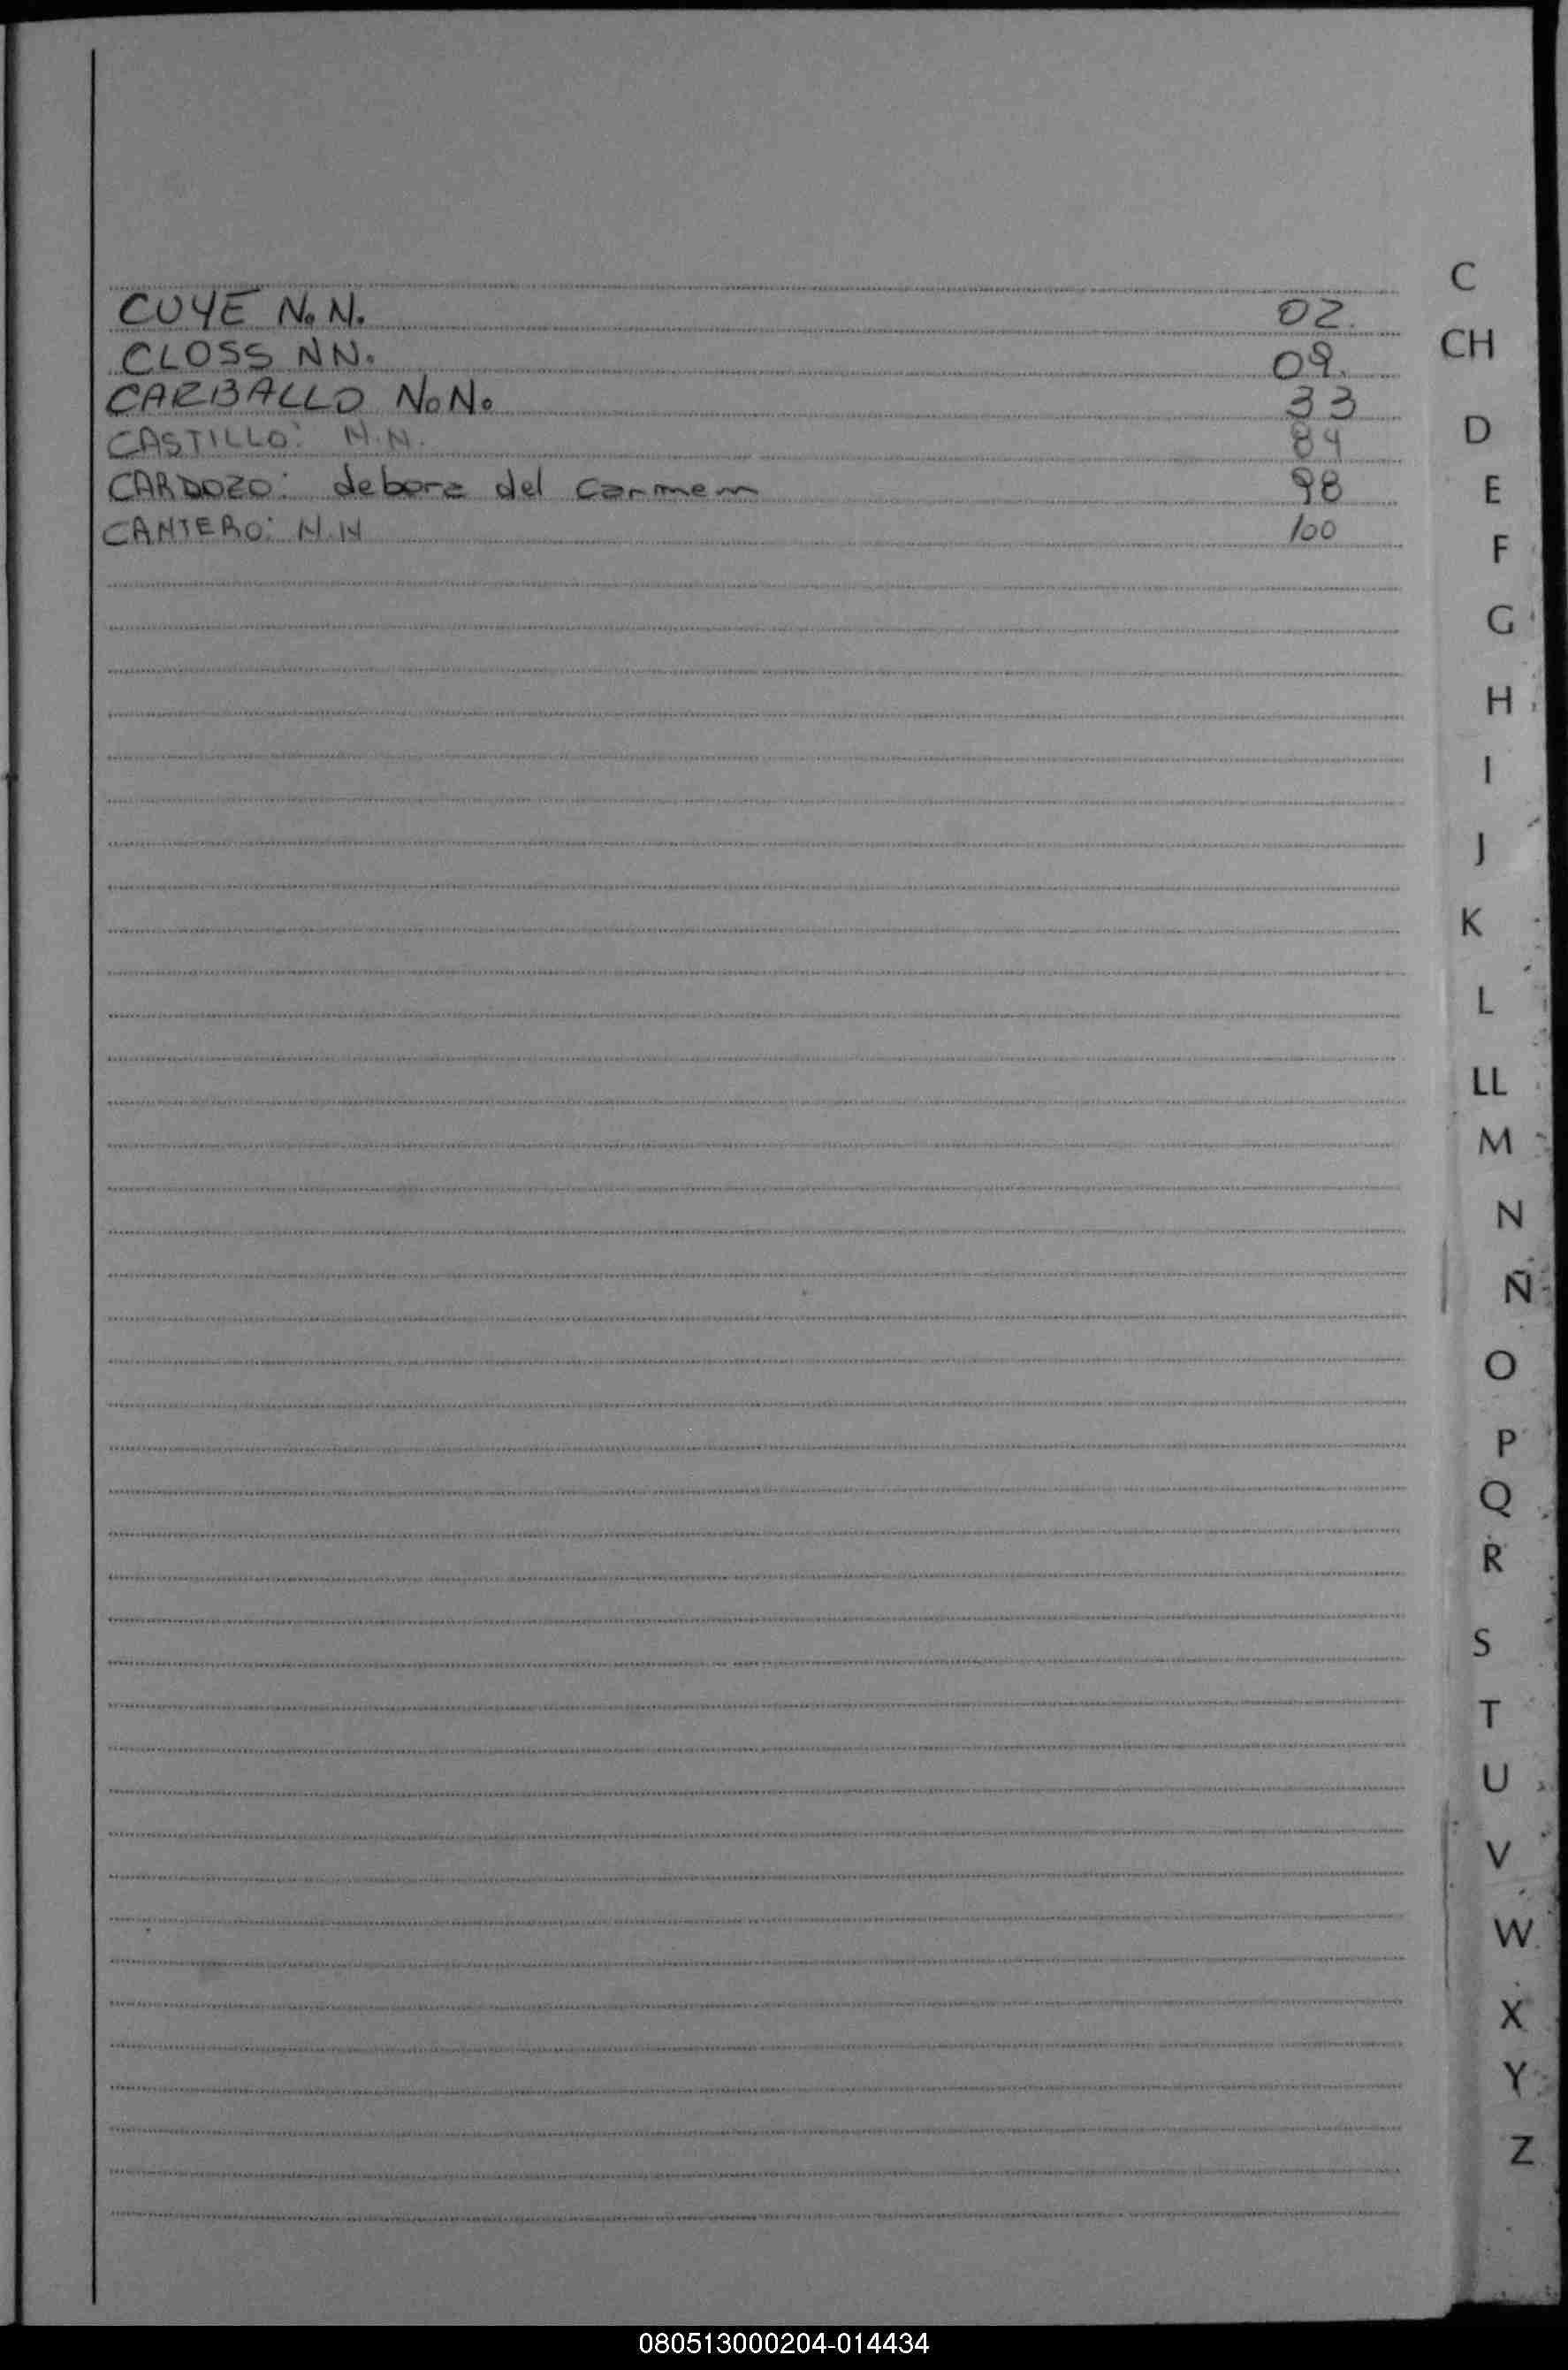 CUYE N.N. 02.
CLOSS NN. 09.
CARBALLO N.N. 33
CASTILLO: N.N. 84
CARDOZO: debora del carmem 98
CANTERO: N.N 100
C
CH
D
E
F
G
H
I
J
K
L
LL
M
N
Ñ
O
P
Q
R
S
T
U
V
W
X
Y
Z
080513000204-014434